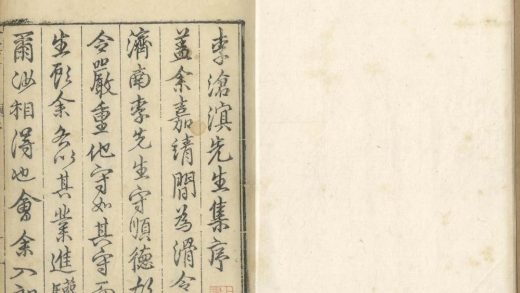 李滄溟先生集序
蓋余嘉靖間為滑令
濟南李先生守順德
令嚴重他守如其守
生顧余各以其業進
爾汝相得也會余入